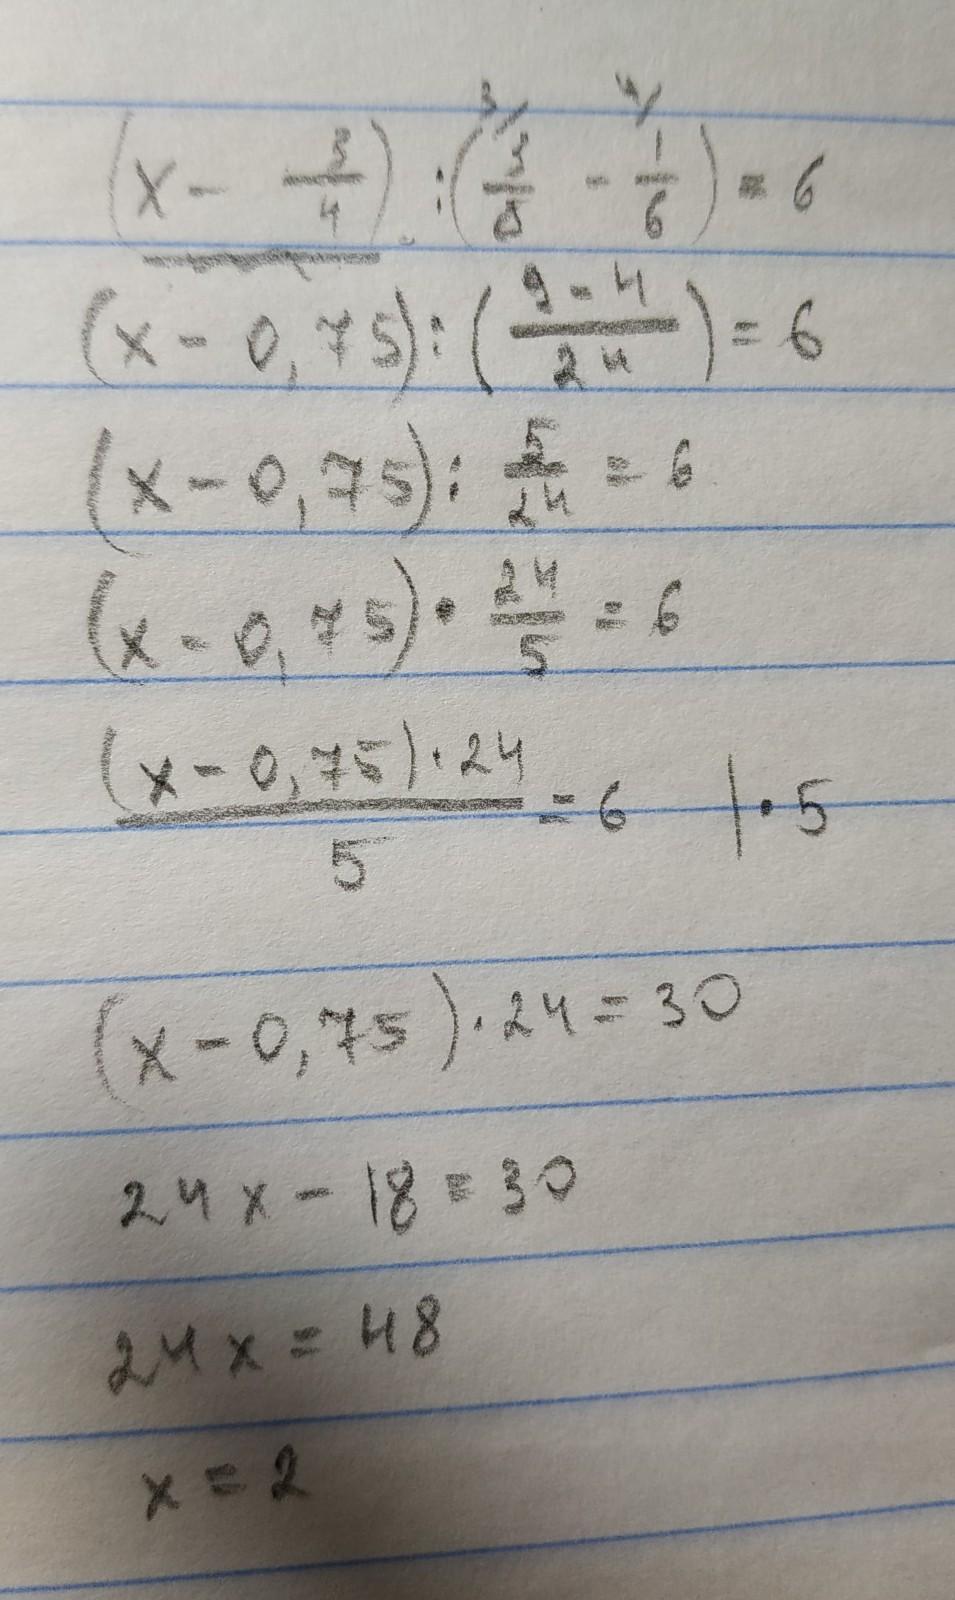 (x - 3/4) : (3/8 - 1/6) = 6 3/ 4/
(x - 0,75) : (9-4/24) = 6
(x - 0,75) : 5/24 = 6
(x - 0,75) · 24/5 = 6
(x - 0,75) · 24/5 = 6 | · 5
(x - 0,75) · 24 = 30
24x - 18 = 30
24x = 48
x = 2